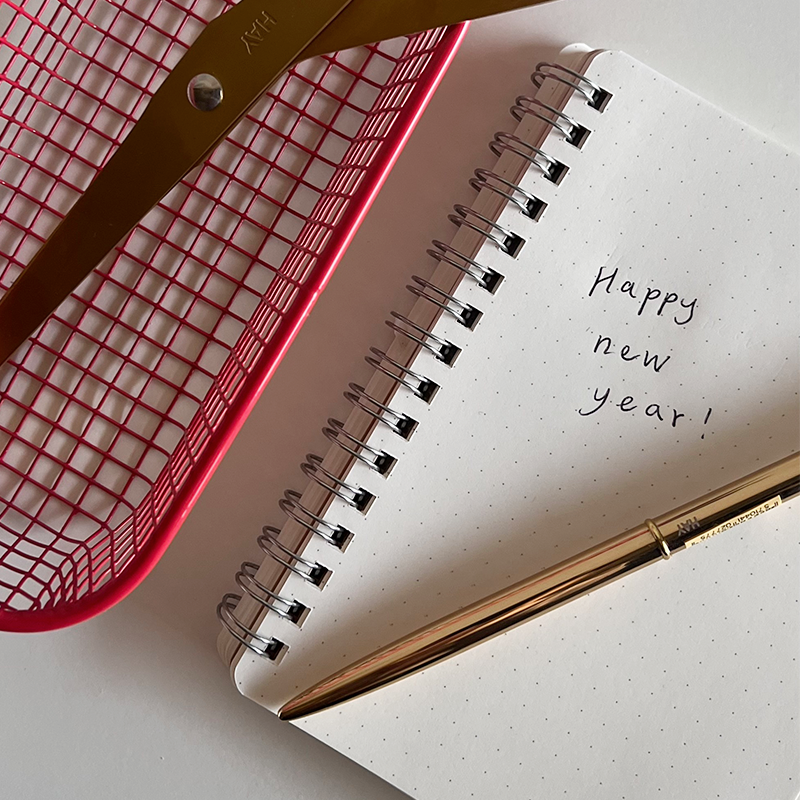 HAY
Happy
new
year!
HAY